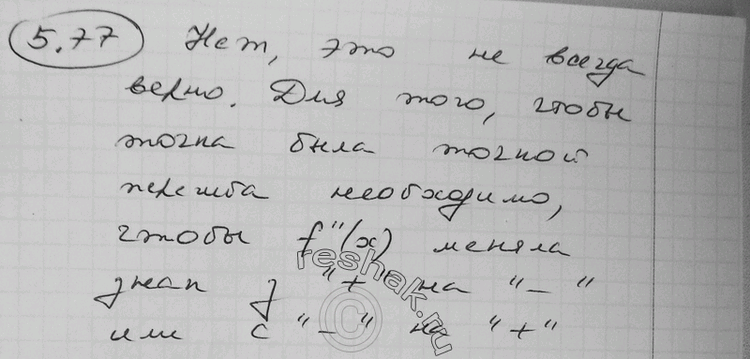 5.77 Нет, это не всегда
верно. Для того, чтобы
точка была точкой
перегиба необходимо,
чтобы f"(x) меняла
знак з "+" на "-"
или с "-" на "+"
reshak.ru